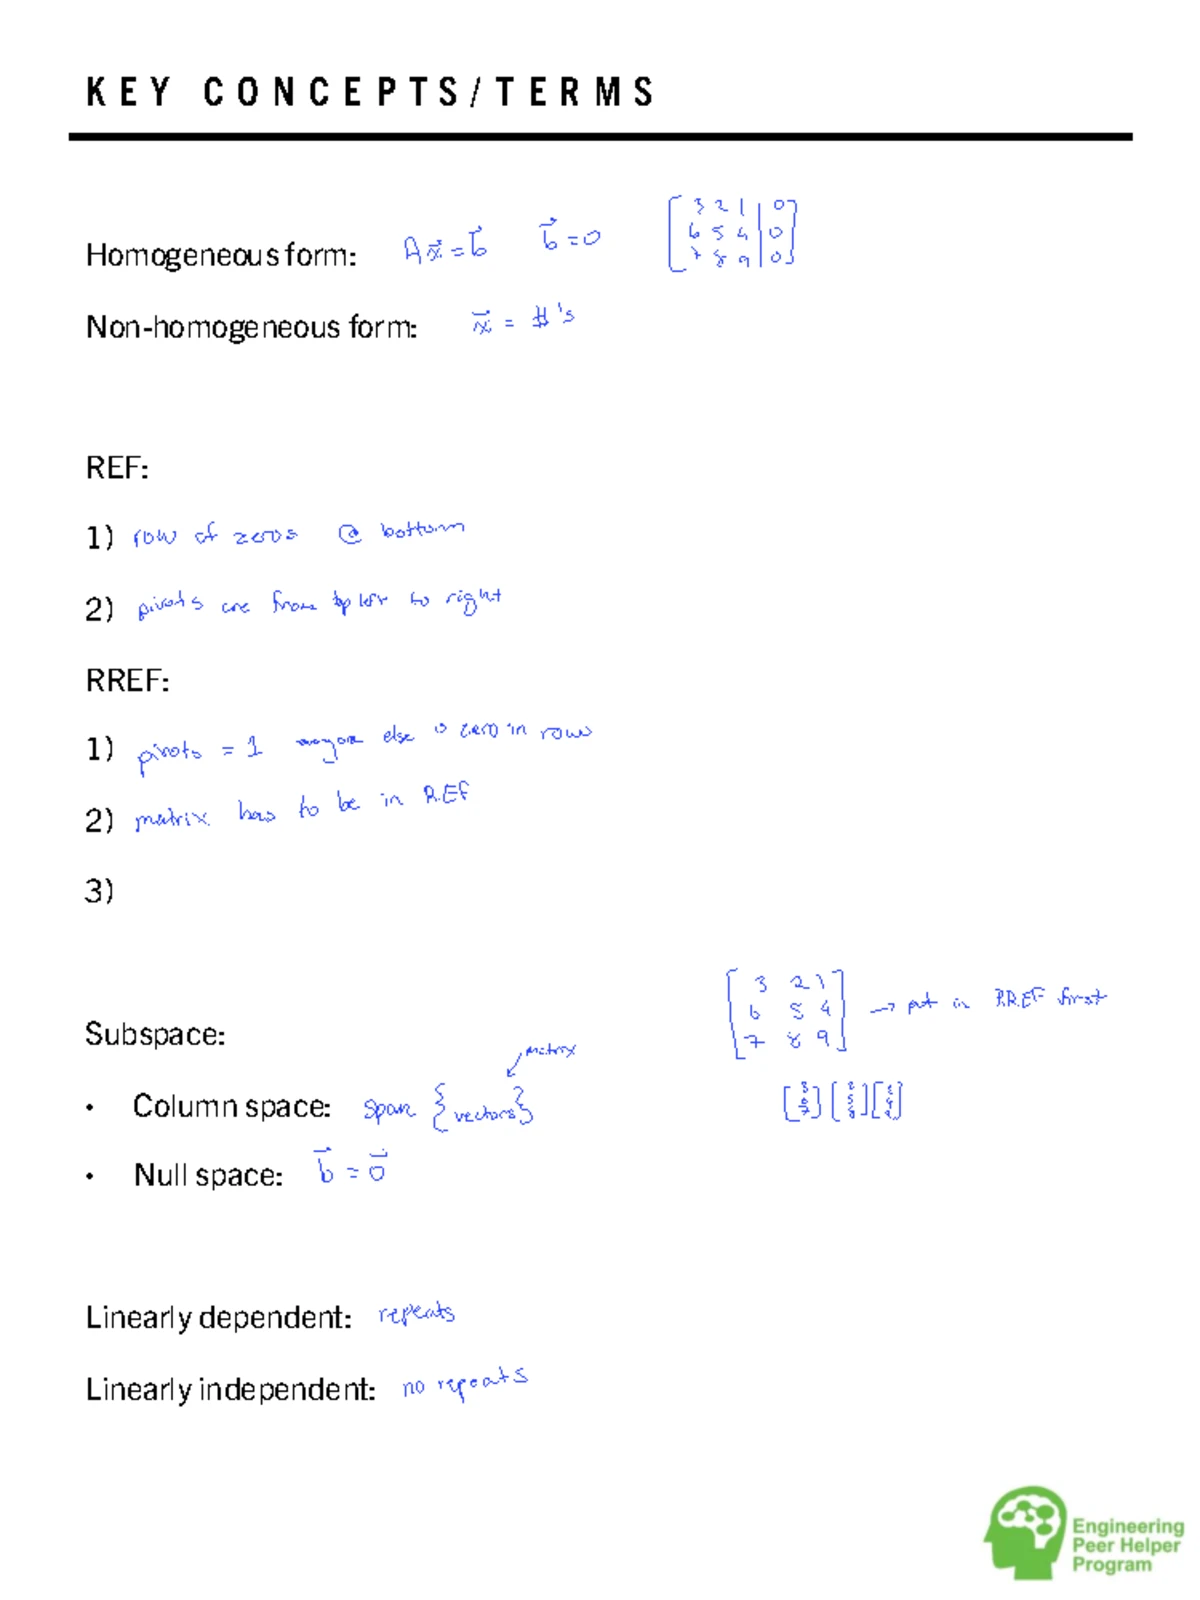 KEY CONCEPTS/TERMS
Homogeneous form: Ax⃗ = b⃗ b⃗ = 0 [3 2 1 | 0
6 5 4 | 0
7 8 9 | 0]
Non-homogeneous form: x⃗ = #'s
REF:
1) row of zeros @ bottom
2) pivots are from top left to right
RREF:
1) pivots = 1 else is zero in row
2) matrix has to be in REF
3)
[3 2 1
6 5 4
7 8 9] → put in RREF first
Subspace:
matrix
• Column space: span {vectors}
• Null space: b⃗ = 0⃗
Linearly dependent: repeats
Linearly independent: no repeats
Engineering
Peer Helper
Program